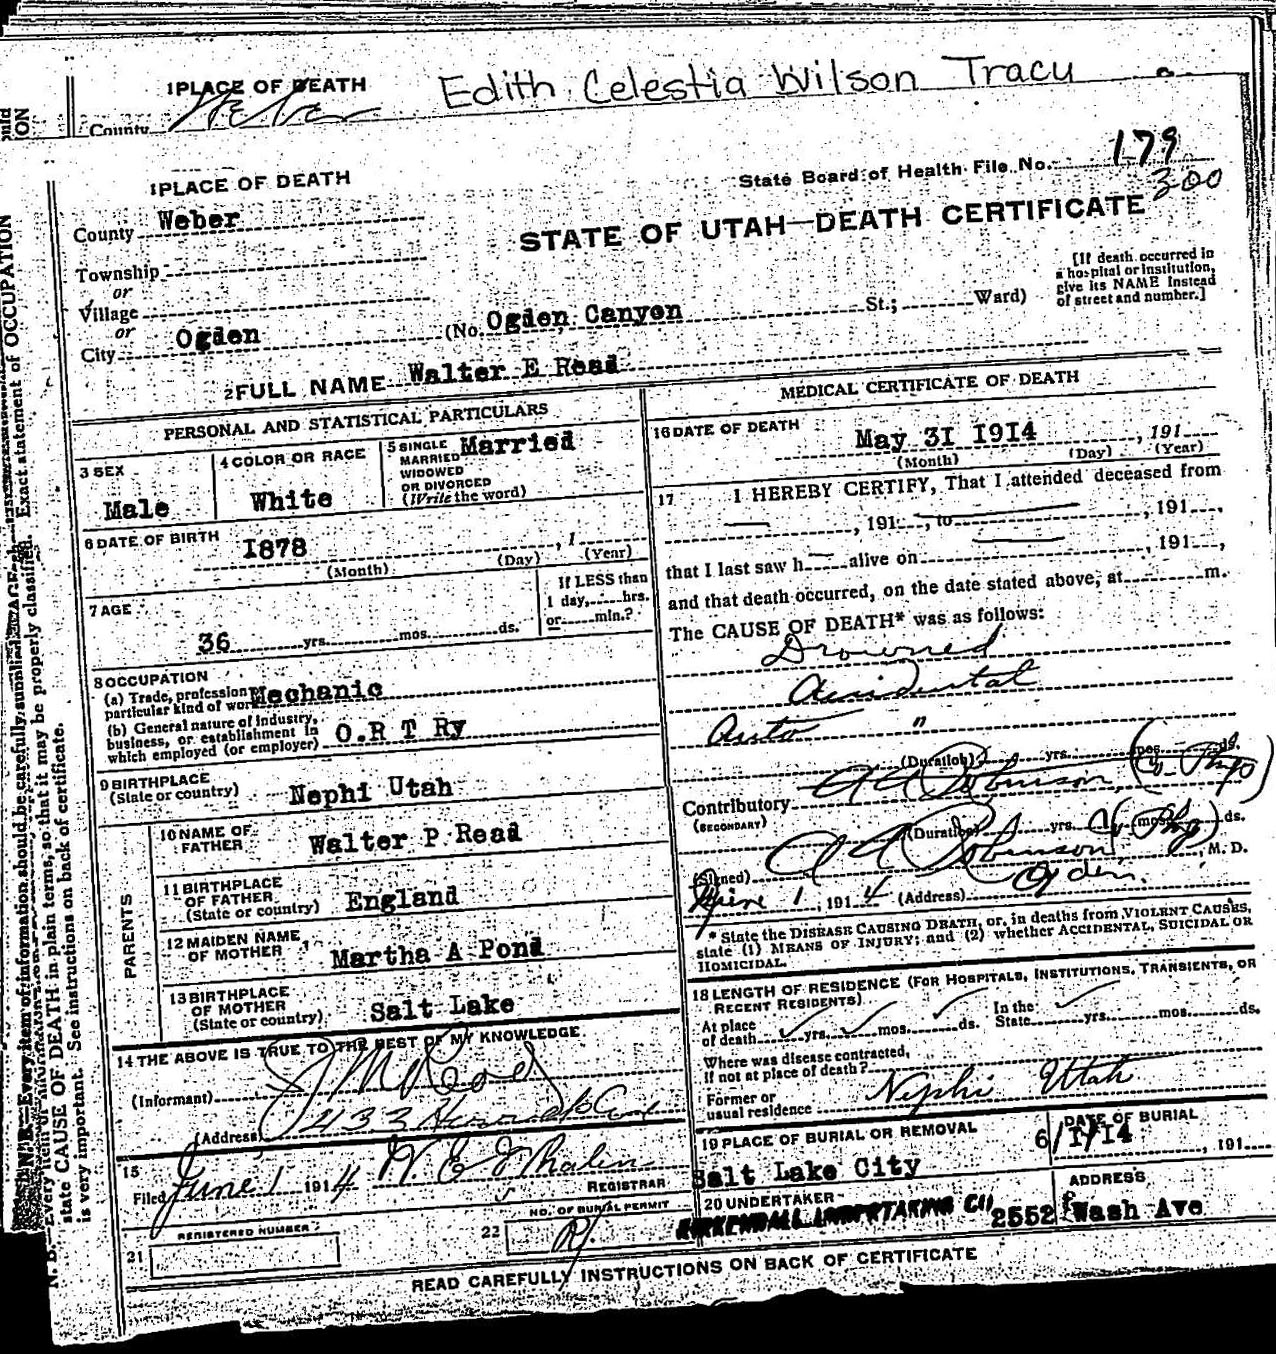 1PLACE OF DEATH Edith Celestia Wilson Tracy
County Weber
1PLACE OF DEATH
State Board of Health File No. 179
300
County Weber
STATE OF UTAH—DEATH CERTIFICATE
Township
or
Village
or
City Ogden (No. Ogden Canyon St.; Ward)
[If death occurred in
a hospital or institution,
give its NAME instead
of street and number.]
2FULL NAME Walter E Read
PERSONAL AND STATISTICAL PARTICULARS
3 SEX
Male
4 COLOR OR RACE
White
5 SINGLE
MARRIED
WIDOWED
OR DIVORCED
(Write the word)
Married
6 DATE OF BIRTH
1878 , 1
(Month) (Day) (Year)
7 AGE
36 yrs. mos. ds.
If LESS than
1 day, hrs.
or min.?
8 OCCUPATION
(a) Trade, profession
particular kind of work Mechanic
(b) General nature of industry,
business, or establishment in
which employed (or employer) O.R T Ry
9 BIRTHPLACE
(State or country) Nephi Utah
PARENTS
10 NAME OF
FATHER Walter P Read
11 BIRTHPLACE
OF FATHER
(State or country) England
12 MAIDEN NAME
OF MOTHER Martha A Pond
13 BIRTHPLACE
OF MOTHER
(State or country) Salt Lake
14 THE ABOVE IS TRUE TO THE BEST OF MY KNOWLEDGE
(Informant)
(Address) 433
15
Filed June 1 1914 REGISTRAR
21 REGISTERED NUMBER
22 NO. OF BURIAL PERMIT
MEDICAL CERTIFICATE OF DEATH
16 DATE OF DEATH
May 31 1914 , 191
(Month) (Day) (Year)
17 I HEREBY CERTIFY, That I attended deceased from
, 191 , to , 191 ,
that I last saw h alive on , 191 ,
and that death occurred, on the date stated above, at m.
The CAUSE OF DEATH* was as follows:
Drowned
Accidental
Auto "
(Duration) yrs. mos. ds.
Contributory
(SECONDARY)
(Duration) yrs. mos. ds.
(Signed) Robinson , M. D.
June 1 , 1914 (Address) Ogden.
* State the DISEASE CAUSING DEATH, or, in deaths from VIOLENT CAUSES,
state (1) MEANS OF INJURY; and (2) whether ACCIDENTAL, SUICIDAL OR
HOMICIDAL.
18 LENGTH OF RESIDENCE (FOR HOSPITALS, INSTITUTIONS, TRANSIENTS, OR
RECENT RESIDENTS)
At place
of death yrs. mos. ds.
In the
State yrs. mos. ds.
Where was disease contracted,
if not at place of death?
Former or
usual residence Nephi Utah
19 PLACE OF BURIAL OR REMOVAL
Salt Lake City
DATE OF BURIAL
6/1/14 , 191
20 UNDERTAKER
KIRKENDALL UNDERTAKING CO
ADDRESS
2552 Wash Ave
READ CAREFULLY INSTRUCTIONS ON BACK OF CERTIFICATE
N. B.—Every item of information should be carefully supplied. Exact statement of OCCUPATION
state CAUSE OF DEATH in plain terms, so that it may be properly classified.
is very important. See instructions on back of certificate.